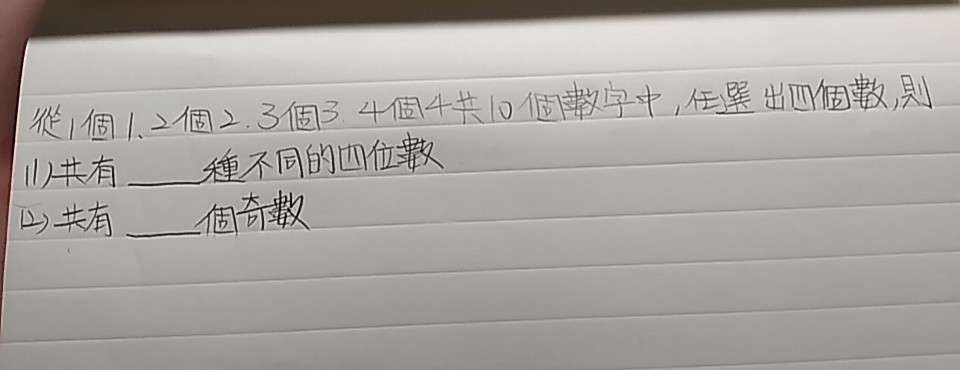 從1個1、2個2、3個3、4個4共10個數字中,任選出四個數,則
(1)共有____種不同的四位數
(2)共有____個奇數